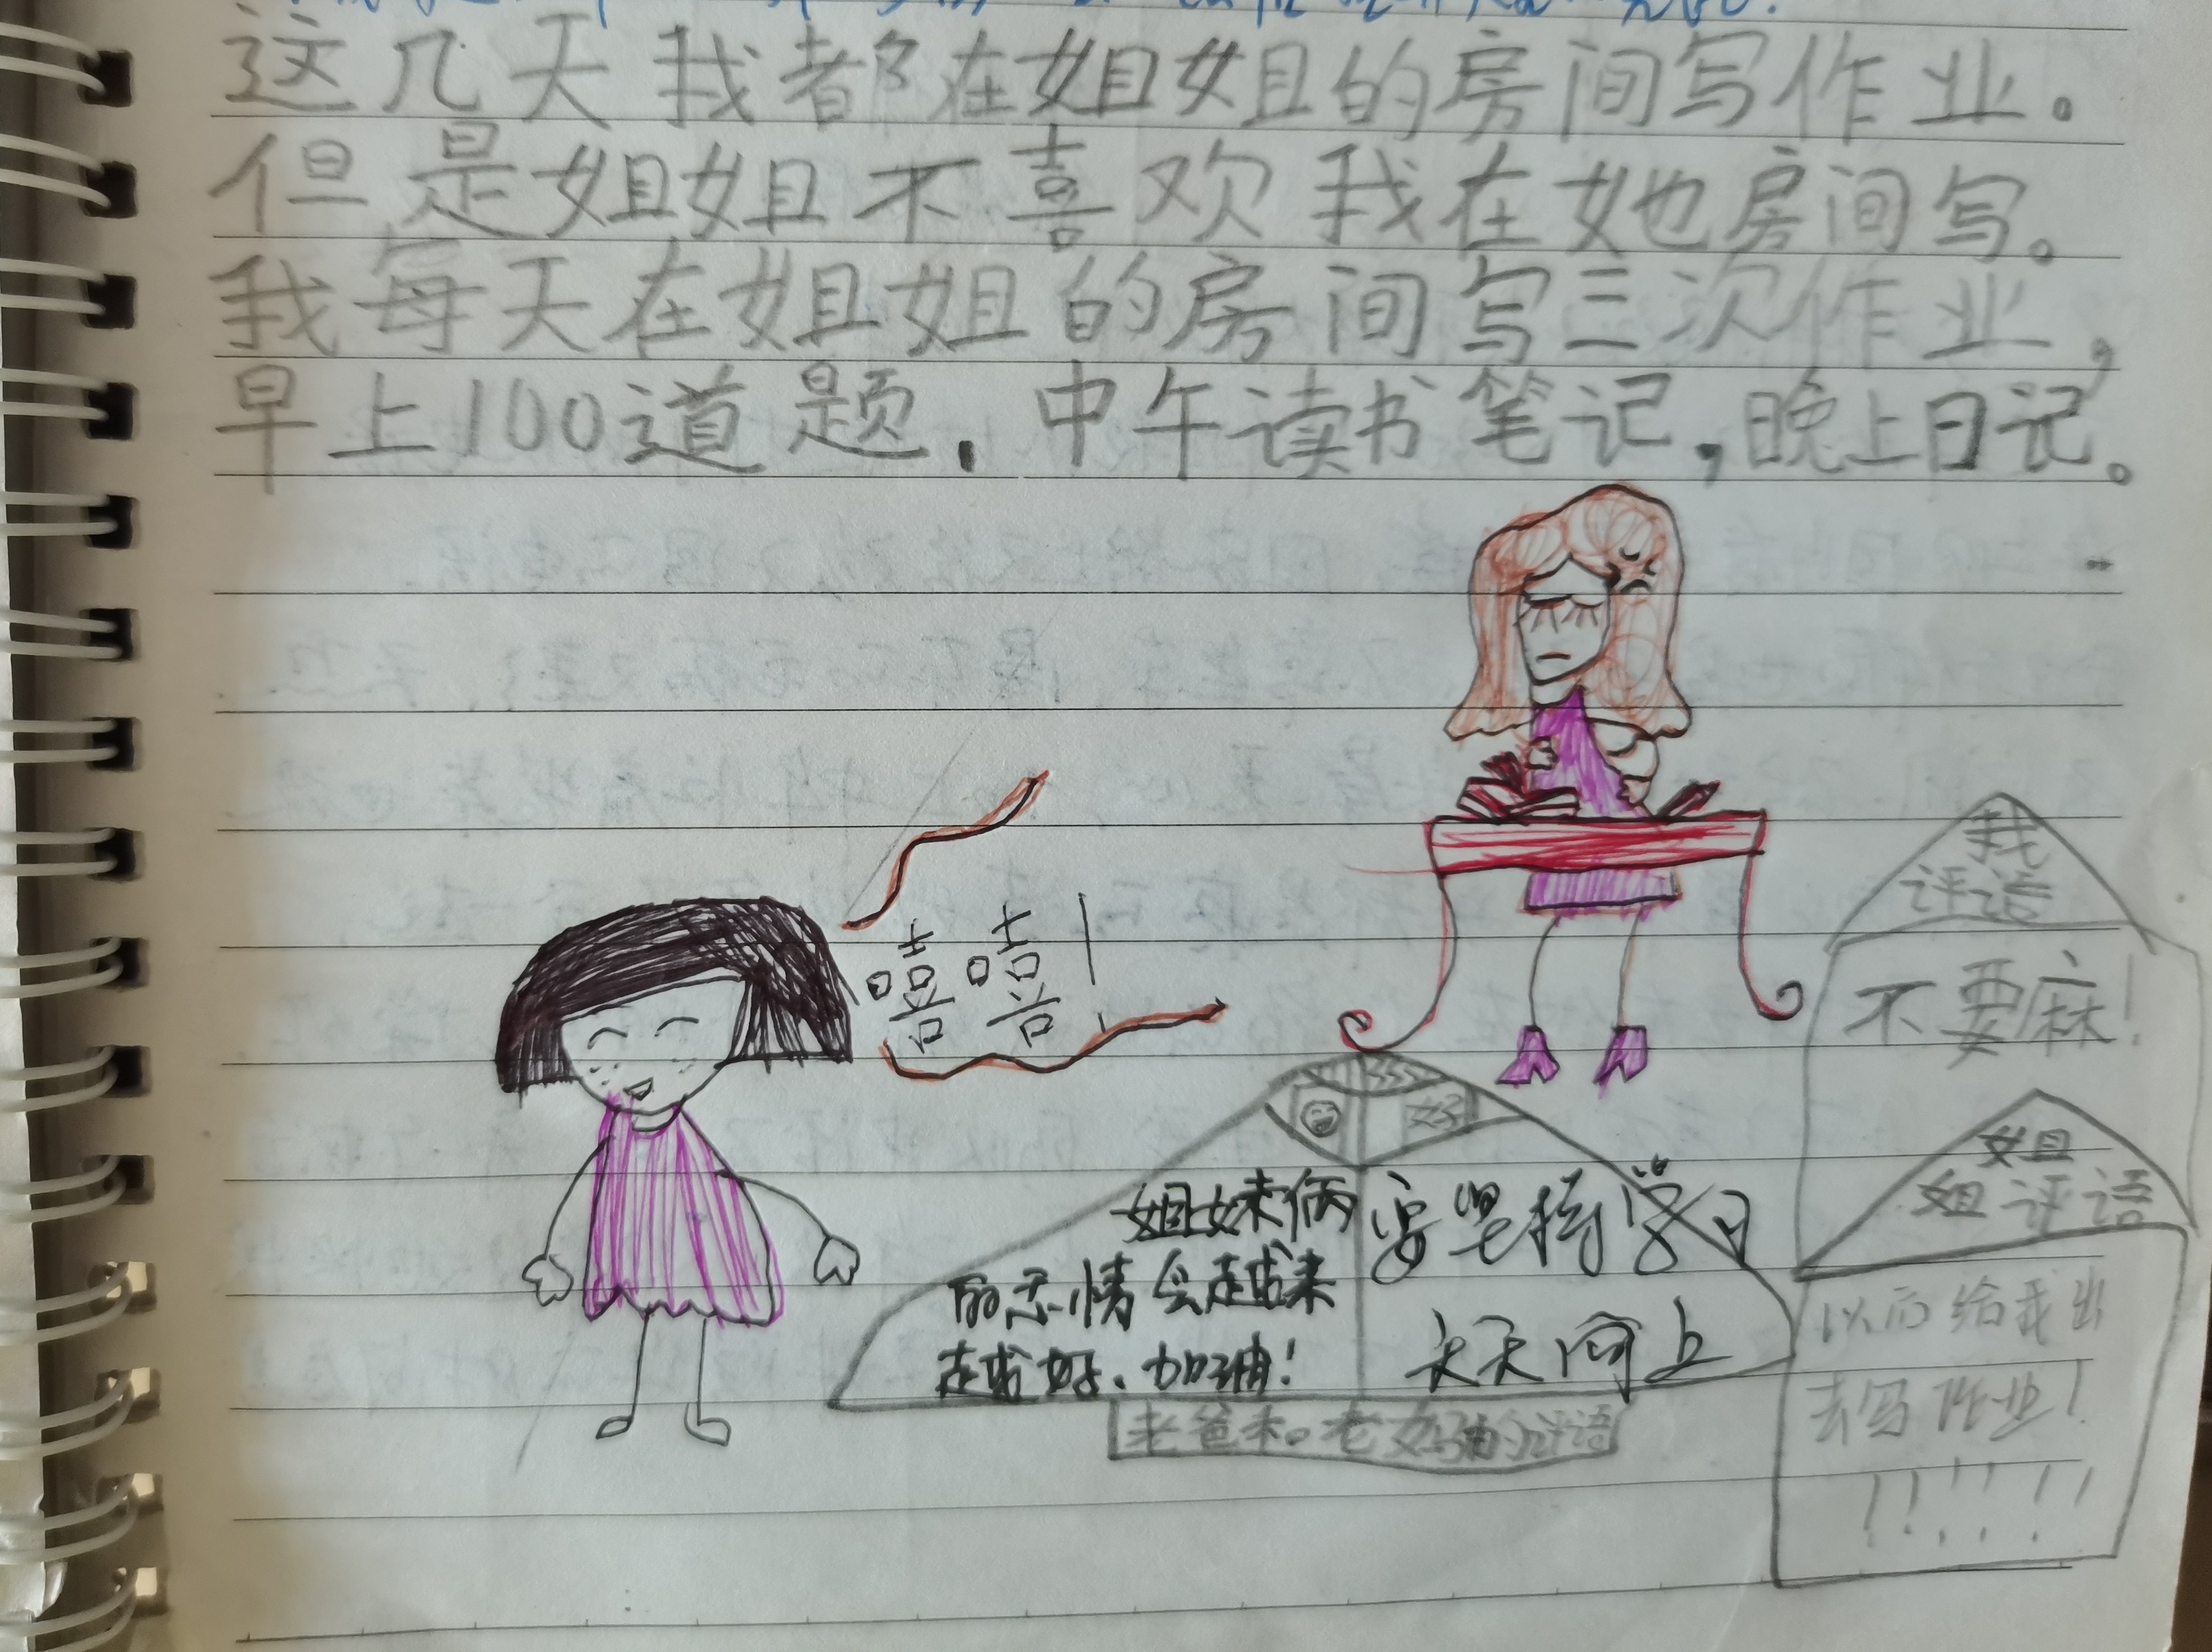 这几天我都在姐姐的房间写作业。
但是姐姐不喜欢我在她房间写。
我每天在姐姐的房间写三次作业,
早上100道题,中午读书笔记,晚上日记。
嘻嘻!
我
评语
不要麻!
姐
姐评语
以后给我出
去写作业!
!!!!!!
好
姐妹俩
的感情会越来
越好、加油!
要坚持学习
天天向上
老爸和老妈的评语